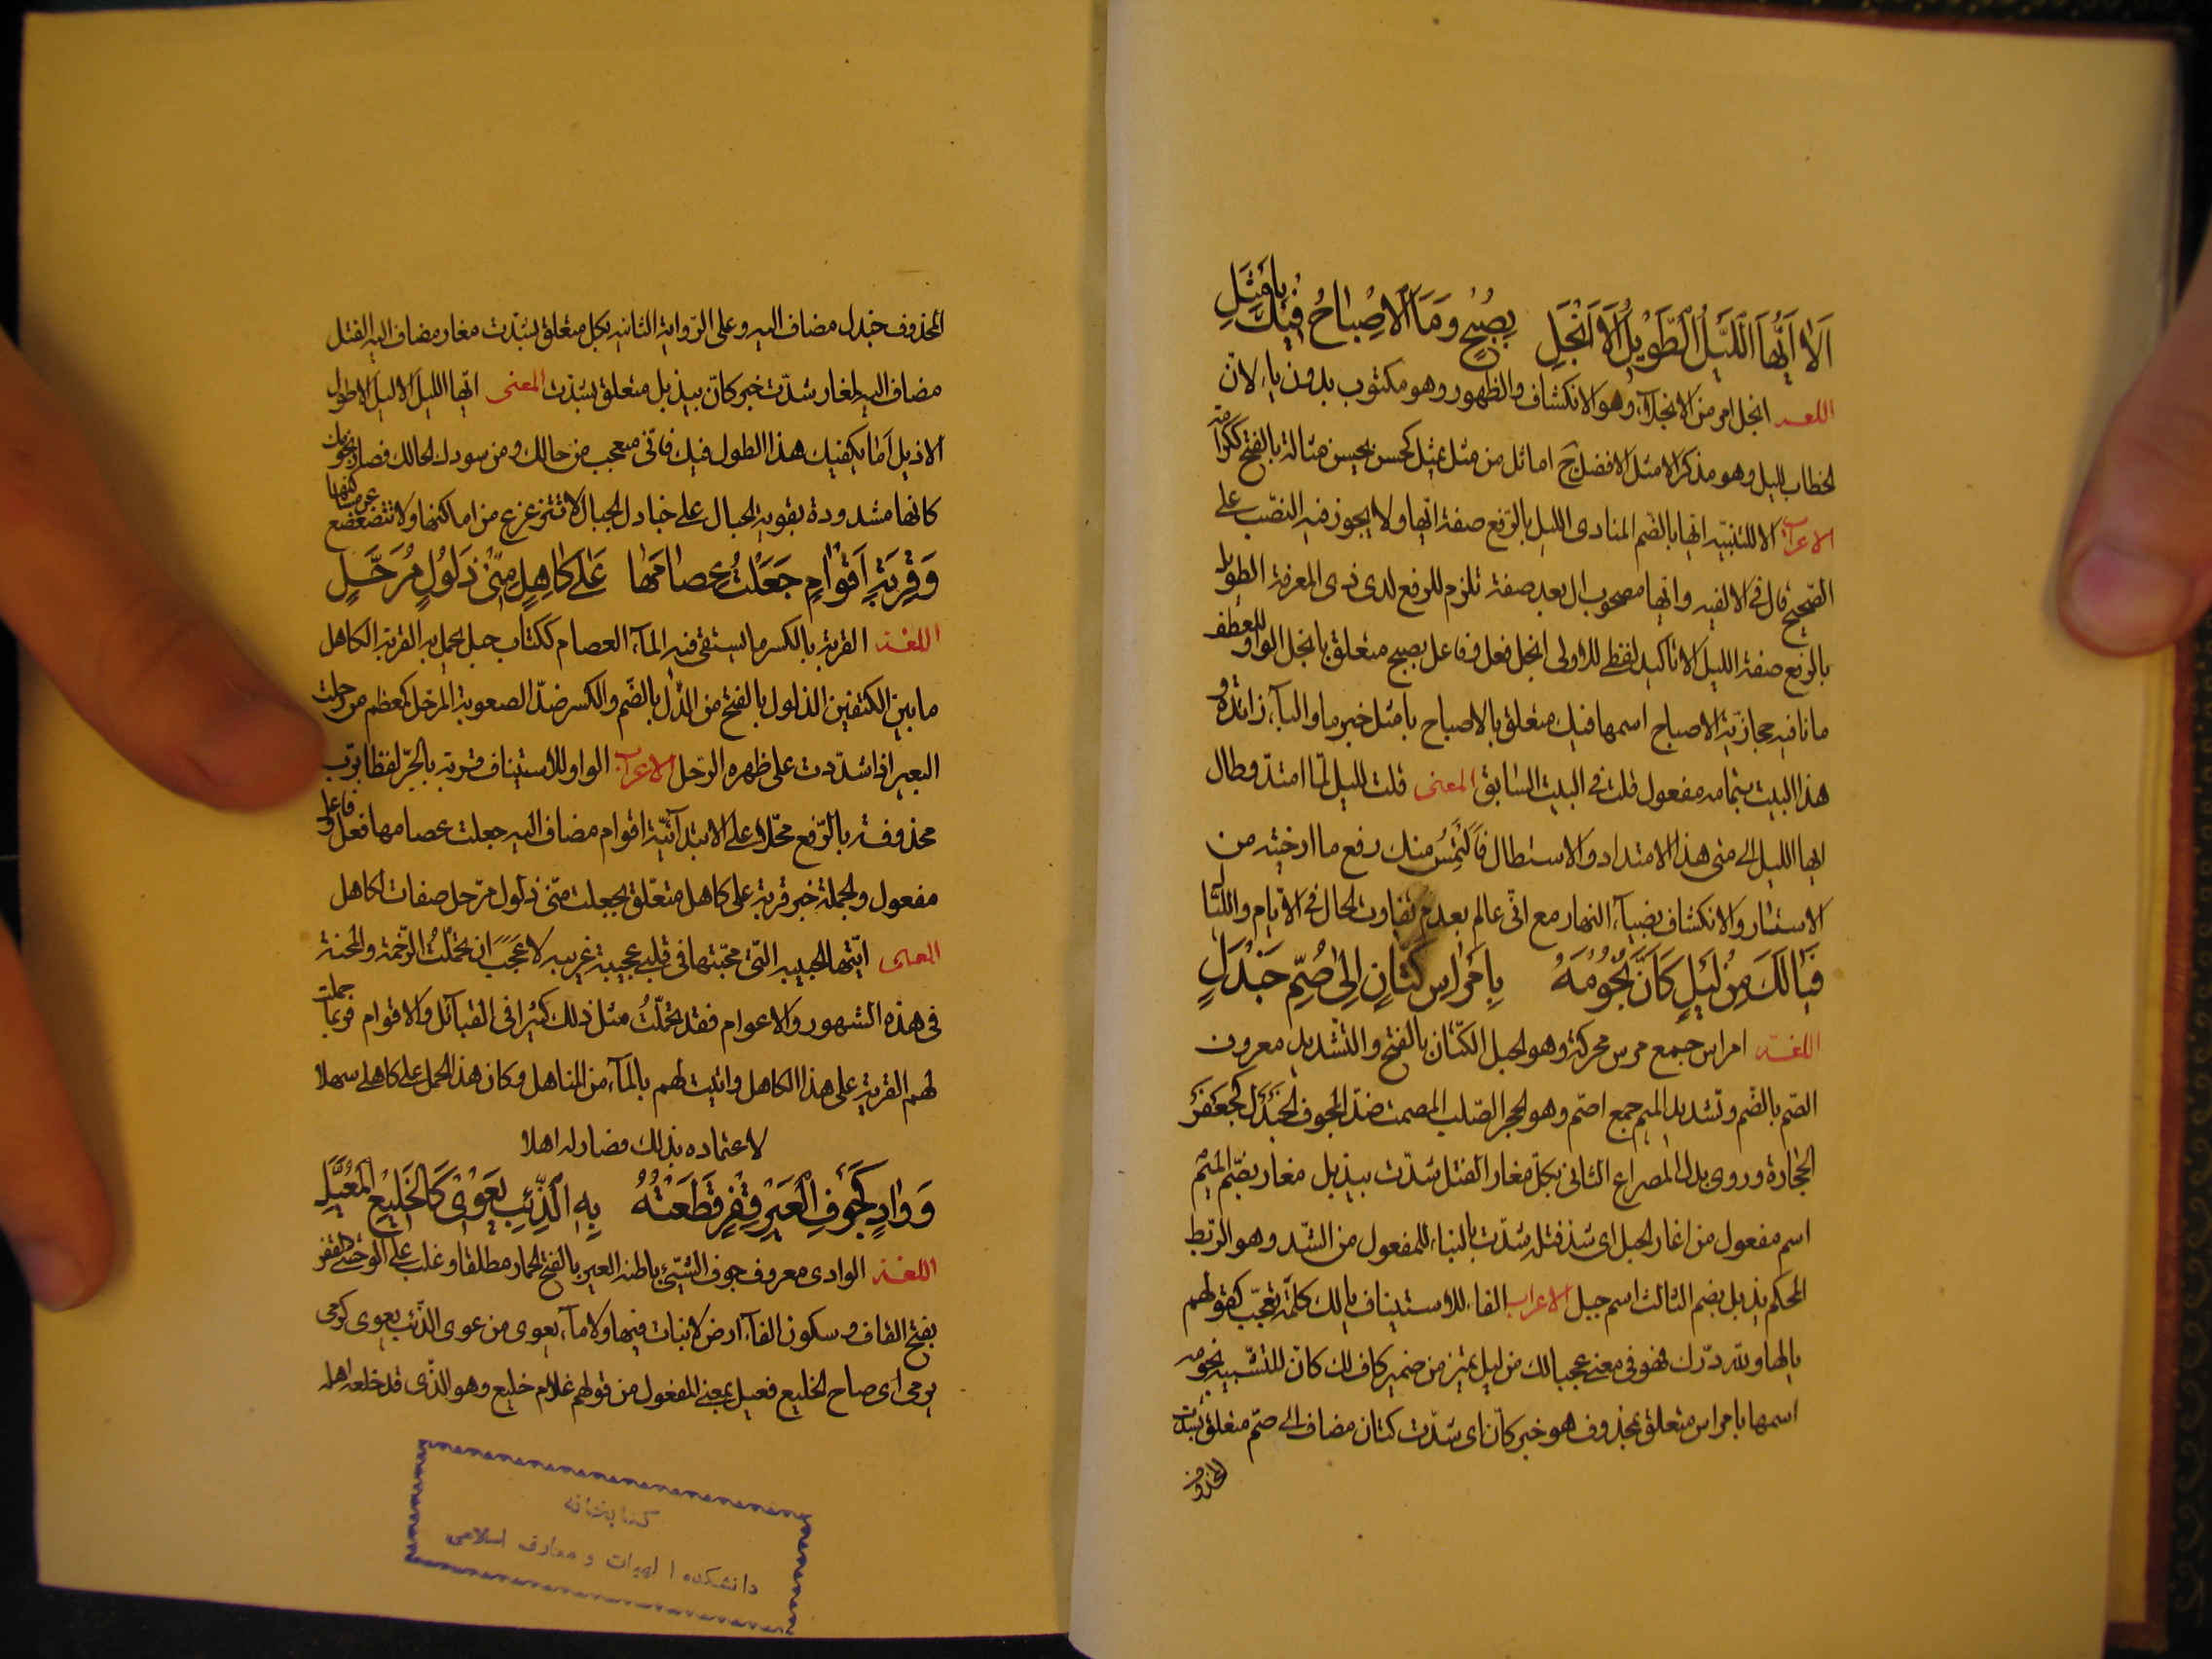 اَلَا اَيُّهَا اللَّيْلُ الطَّوِيْلُ اَلَا اَنْجَلِ بِصُبْحٍ وَمَا الْاِصْبَاحُ فِيْكَ بِاَمْثَلِ
اللغة انجل امر من الانجلاء وهو الانكشاف والظهور وهو مكتوب بدون ياء لان
الخطاب لليل وهو مذكر الامثل الافضل ج اماثل من مثل يمثل كحسن يحسن مثالة بالفتح ككرامة
الاعراب الا للتنبيه ايها بالضم المنادى الليل بالرفع صفة ايها ولا يجوز فيه النصب على
الصحيح قال في الالفيه وايها مصحوب ال بعد صفة تلزم للرفع لدى ذى المعرفة الطويل
بالرفع صفة الليل الا تاكيد لفظى للاولى انجل فعل وفاعل بصبح متعلق بانجل الواو للعطف
ما نافيه حجازية الاصباح اسمها فيك متعلق بالاصباح بامثل خبر ما والباء زائدة و
هذا البيت بتمامه مفعول قلت في البيت السابق المعنى قلت لليل لما امتد وطال
ايها الليل الى متى هذا الامتداد والاستطال فالتمس منك رفع ما ارخيته من
الاستتار والانكشاف بضياء النهار مع انى عالم بعدم تفاوت الحال في الايام والليال
فَيَالَكَ مِنْ لَيْلٍ كَاَنَّ نُجُوْمَهُ بِاَمْرَاسِ كَتَّانٍ اِلىٰ صُمِّ جَنْدَلٍ
اللغة امراس جمع مرس محركة وهو الحبل الكتان بالفتح والتشديد معروف
الصم بالضم وتشديد الميم جمع اصم وهو الحجر الصلب المصمت ضد المجوف الجندل كجعفر
الحجارة وروى بدل المصراع الثانى بكل مغار الفتل شدت بيذبل مغار بضم الميم
اسم مفعول من اغار الحبل اى شد فتله شدت بالبناء للمفعول من الشد وهو الربط
المحكم يذبل بضم الثالث اسم جبل الاعراب الفاء للاستيناف يالك كلمة تعجب كقولهم
يالها ولله درك فهو في معنى عجبا لك من ليل تميز من ضمير كاف لك كان للتشبيه نجومه
اسمها بامراس متعلق بمحذوف هو خبر كان اى شدت كتان مضاف الى صم متعلق بشدت
المحذوف
المحذوف جندل مضاف اليه وعلى الرواية الثانيه بكل متعلق بشدت مغار مضاف اليه الفتل
مضاف اليه لمغار شدت خبر كان بيذبل متعلق بشدت المعنى ايها الليل الاليل الاطول
الاذيل اما يكفيك هذا الطول فيك فانى متعجب من حالك ومن سودك الحالك فصار نجومك
كانها مشدودة بقوية الحبال على جنادل الجبال لا تتزعزع من اماكنها ولا تتضعضع
وَقِرْبَةِ اَقْوَامٍ جَعَلْتُ عِصَامَهَا عَلىٰ كَاهِلٍ مِنِّىْ ذَلُوْلٍ مُرَحَّلٍ
اللغة القربة بالكسر ما يستقى فيه الماء العصام ككتاب حبل يحمل به القربة الكاهل
ما بين الكتفين الذلول بالفتح من الذل بالضم والكسر ضد الصعوبة المرحل كمعظم من رحلت
البعير اذا شددت على ظهره الرحل الاعراب الواو للاستيناف قربة بالجر لفظا برب
محذوفة بالرفع محلا على الابتدائية اقوام مضاف اليه جعلت عصامها فعل وفاعل
مفعول والجملة خبر قربة على كاهل متعلق بجعلت منى ذلول مرحل صفات لكاهل
المعنى ايتها الحبيبه التى محبتها في قلبى عجيبة غريبه لا عجب ان تحملت الزحمة والمحنة
في هذه الشهور والاعوام فقد تحملت مثل ذلك كثيرا في القبائل والاقوام فربما حملت
لهم القربة على هذا الكاهل واتيت لهم بالماء من المناهل وكان هذا الحمل على كاهلى سهلا
لاعتماده بذلك فصار له اهلا
وَوَادٍ كَجَوْفِ الْعَيْرِ قَفْرٍ قَطَعْتُهُ بِهِ الذِّئْبُ يَعْوِىْ كَالْخَلِيْعِ الْمُعَيَّلِ
اللغة الوادى معروف جوف الشئ باطنه العير بالفتح الحمار مطلقا وغلب على الوحشى القفر
بفتح القاف وسكون الفاء ارض لا نبات فيها ولا ماء يعوى من عوى الذئب يعوى كرمى
يرمى اى صاح الخليع فعيل بمعنى المفعول من قولهم غلام خليع وهو الذى قد خلعه اهله
كتابخانه
دانشكده الهيات و معارف اسلامى